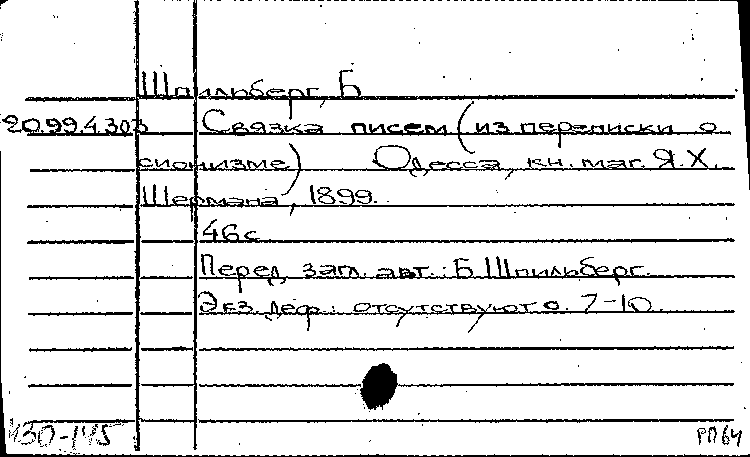 Шпильберг, Б
20.99.4.303 Связка писем (из переписки о
сионизме) Одесса, кн. маг. Я.Х.
Шермана, 1899.
46с
Перед загл. авт.: Б Шпильберг.
Экз. деф.: отсутствуют с. 7-10.
430-145 РП64